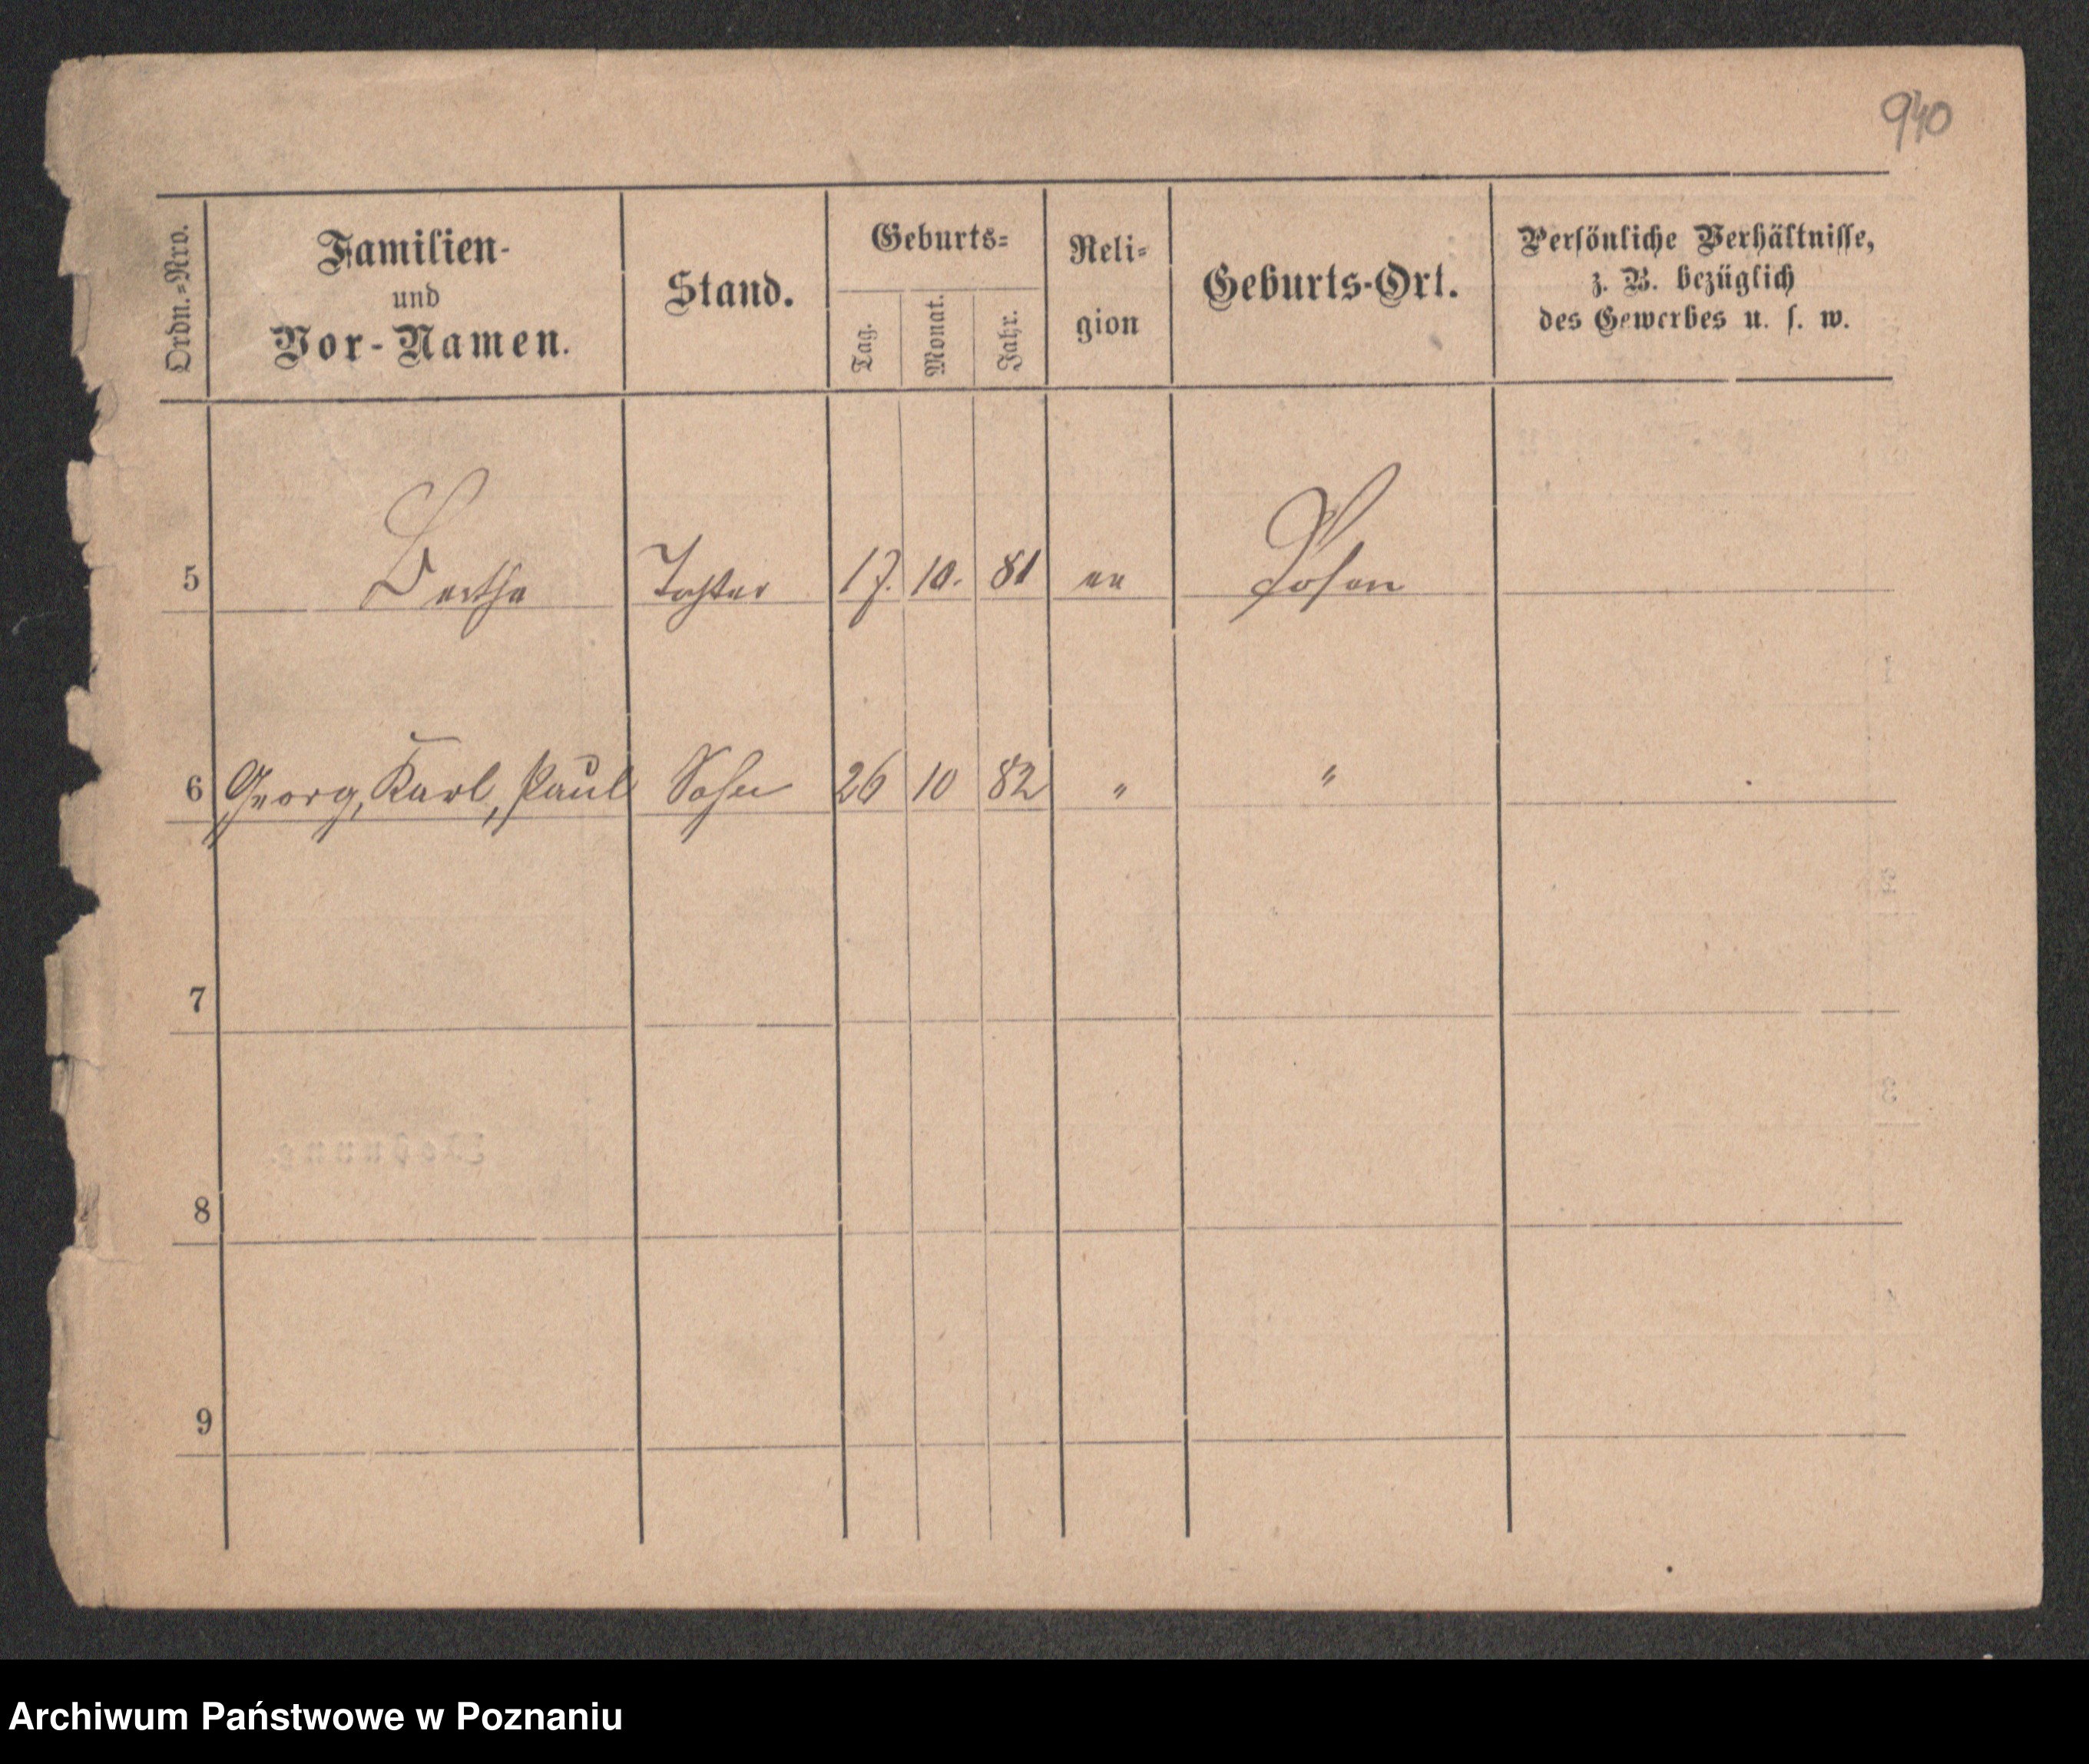 940
Ordn.-Nro.
Familien-
und
Vor-Namen.
Stand.
Geburts-
Tag. Monat. Jahr.
Reli-
gion
Geburts-Ort.
Persönliche Verhältnisse,
z. B. bezüglich
des Gewerbes u. s. w.
5 Bertha Tochter 17. 10. 81 ev Posen
6 Georg, Karl, Paul Sohn 26 10 82 " "
7
8
9
Archiwum Państwowe w Poznaniu